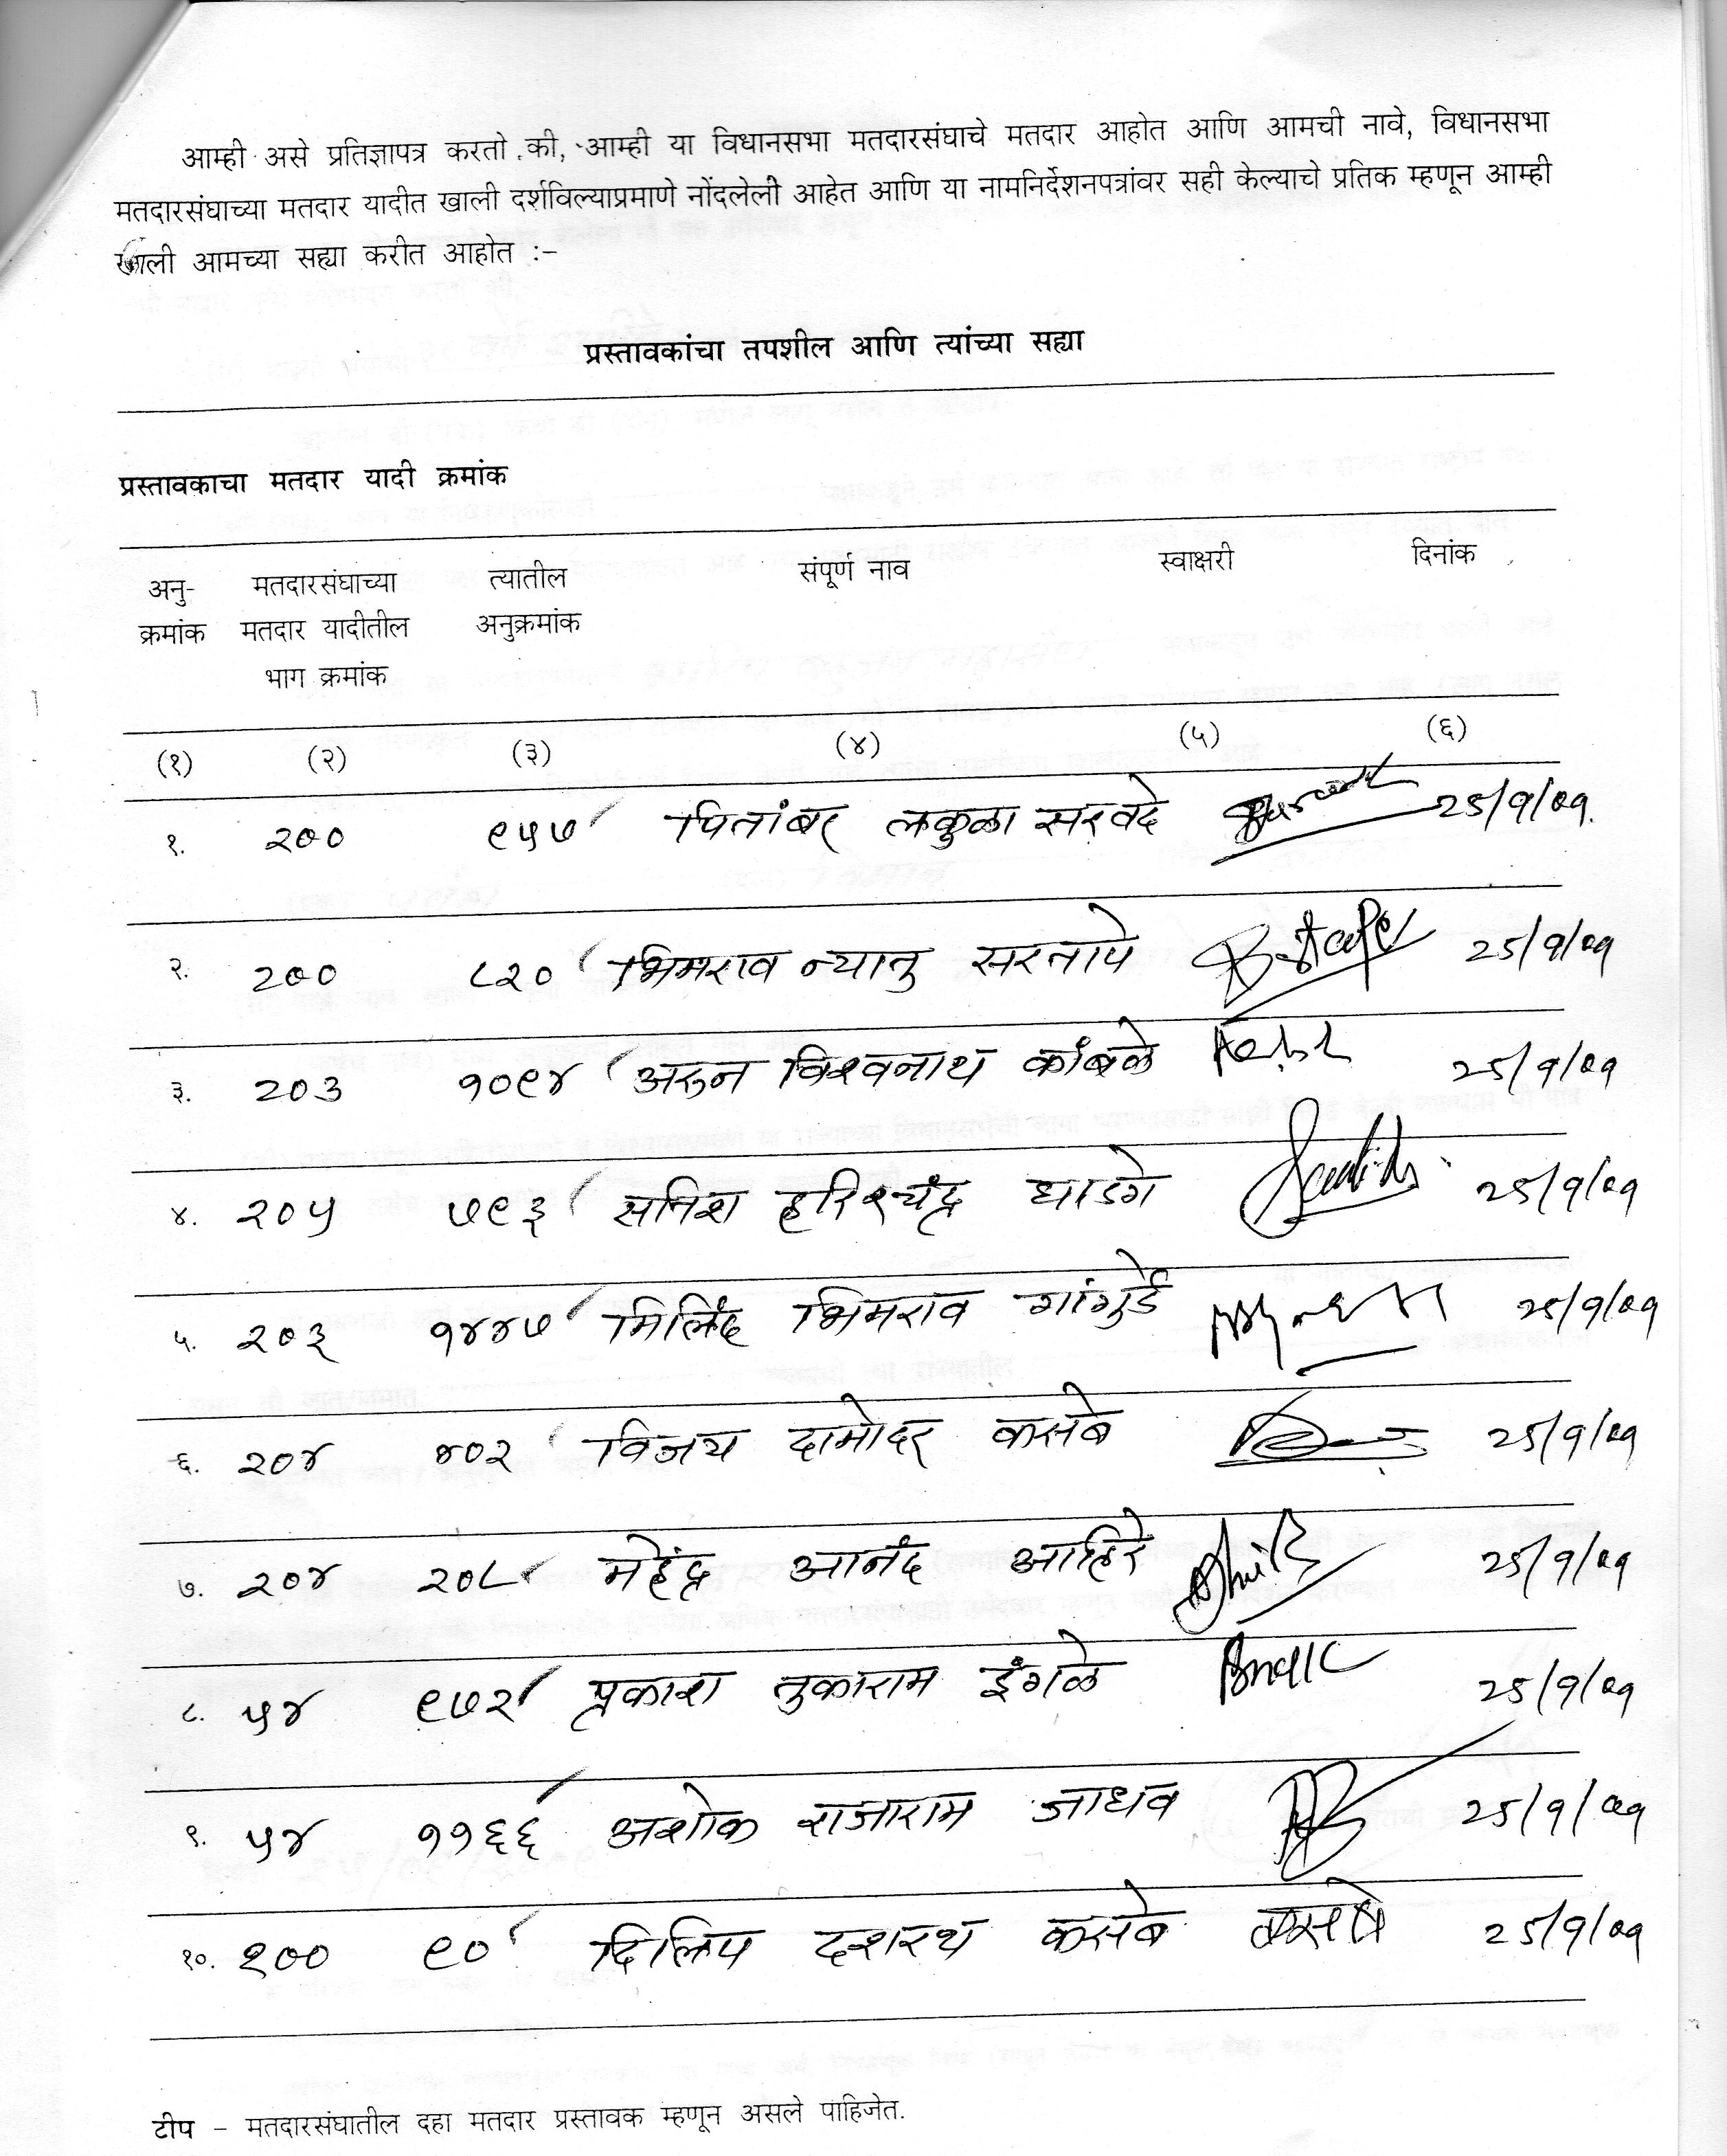 आम्ही असे प्रतिज्ञापत्र करतो की, आम्ही या विधानसभा मतदारसंघाचे मतदार आहोत आणि आमची नावे, विधानसभा
मतदारसंघाच्या मतदार यादीत खाली दर्शविल्याप्रमाणे नोंदलेली आहेत आणि या नामनिर्देशनपत्रांवर सही केल्याचे प्रतिक म्हणून आम्ही
खाली आमच्या सह्या करीत आहोत :-
प्रस्तावकांचा तपशील आणि त्यांच्या सह्या
प्रस्तावकाचा मतदार यादी क्रमांक
अनु- मतदारसंघाच्या त्यातील संपूर्ण नाव स्वाक्षरी दिनांक
क्रमांक मतदार यादीतील अनुक्रमांक
भाग क्रमांक
(१) (२) (३) (४) (५) (६)
१. २०० ९५७ पितांबर लकुळा सरवदे 25/9/09.
२. २०० ८२० भिमराव न्यानु सरतापे 25/9/09
३. २०३ १०९४ अरुन विश्वनाथ कांबळे 25/9/09
४. २०५ ७९३ सतिश हरिश्चंद्र घाडगे 25/9/09
५. २०३ १४४७ मिलिंद भिमराव गांगुर्डे 25/9/09
६. २०४ ४०२ विजय दामोदर कसबे 25/9/09
७. २०४ २०८ महेंद्र आनंद आहिरे 25/9/09
८. ५४ ९७२ प्रकाश तुकाराम इंगळे 25/9/09
९. ५४ ११६६ अशोक राजाराम जाधव 25/9/09
१०. २०० ९० दिलिप दशरथ कसबे 25/9/09
टीप - मतदारसंघातील दहा मतदार प्रस्तावक म्हणून असले पाहिजेत.